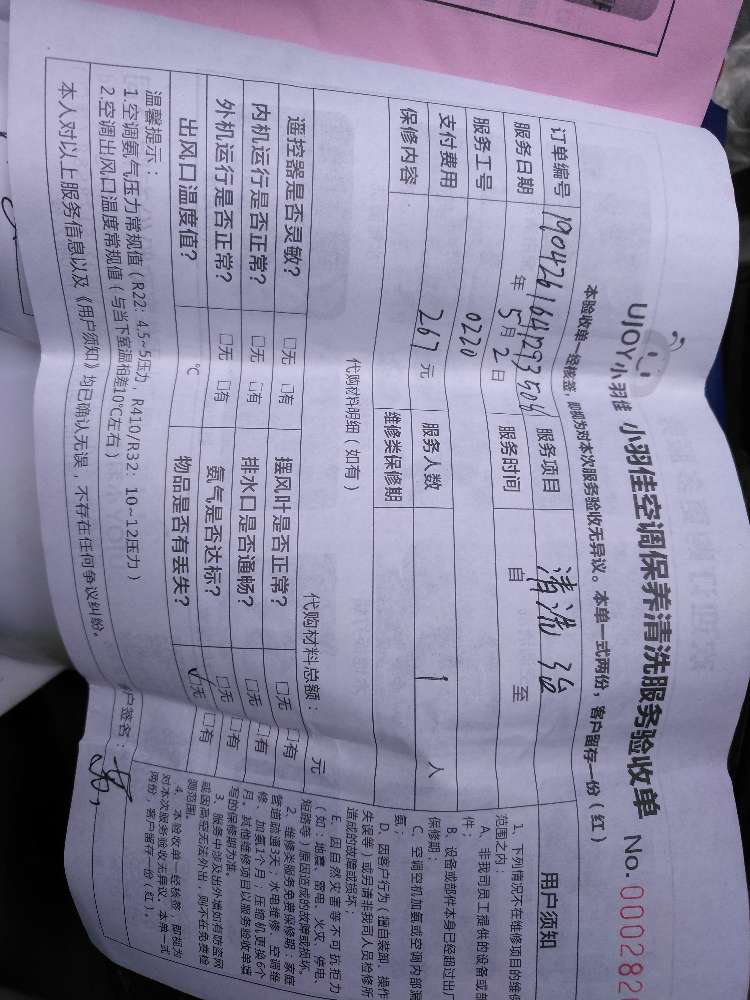 UJOY小羽佳 小羽佳空调保养清洗服务验收单 No.000282
本验收单一经核签，即视为对本次服务验收无异议。本单一式两份，客户留存一份（红）
订单编号 服务项目 清洗3台
服务日期 年5月2日 服务时间 自 至
服务工号 0220
支付费用 267元 服务人数 1 人
保修内容 维修类保修期
代购材料明细（如有）
代购材料总额： 元
遥控器是否灵敏？ □无 □有 摆风叶是否正常？ □无 □有
内机运行是否正常？ □无 □有 排水口是否通畅？ □无 □有
外机运行是否正常？ □无 □有 氨气是否达标？ □无 □有
出风口温度值？ ℃ 物品是否有丢失？ ☑无 □有
温馨提示：
1.空调氨气压力常规值（R22：4.5~5压力，R410/R32：10~12压力）
2.空调出风口温度常规值（与当下室温相差10℃左右）
本人对以上服务信息以及《用户须知》均已确认无误，不存在任何争议纠纷。
户签名：
用户须知
1、下列情况不在维修项目的维
范围之内：
A、非我司员工提供的设备或部
件；
B、设备或部件本身已经超过出厂
保修期；
C、空调空机加氨或空调内部漏
氨；
D、因客户行为（擅自装卸、操作
失误等）或另请非我司人员检修所
造成的故障或损坏；
E、因自然灾害等不可抗拒力
（如：地震、雷电、火灾、停电、
短路等）原因造成的故障或损坏。
2、维修类服务免费保修期：家庭
管道疏通3天；水电维修、空调维
修、加氨1个月；压缩机更换6个
月。其他维修项目以服务验收单填
写的保修期为准。
3、服务中涉及出外墙如有防盗网
或因高空无法外出，则不在免费检
测范围。
4、本验收单一经核签，即视为
对本次服务验收无异议，本单一式
两份，客户留存一份（红）。